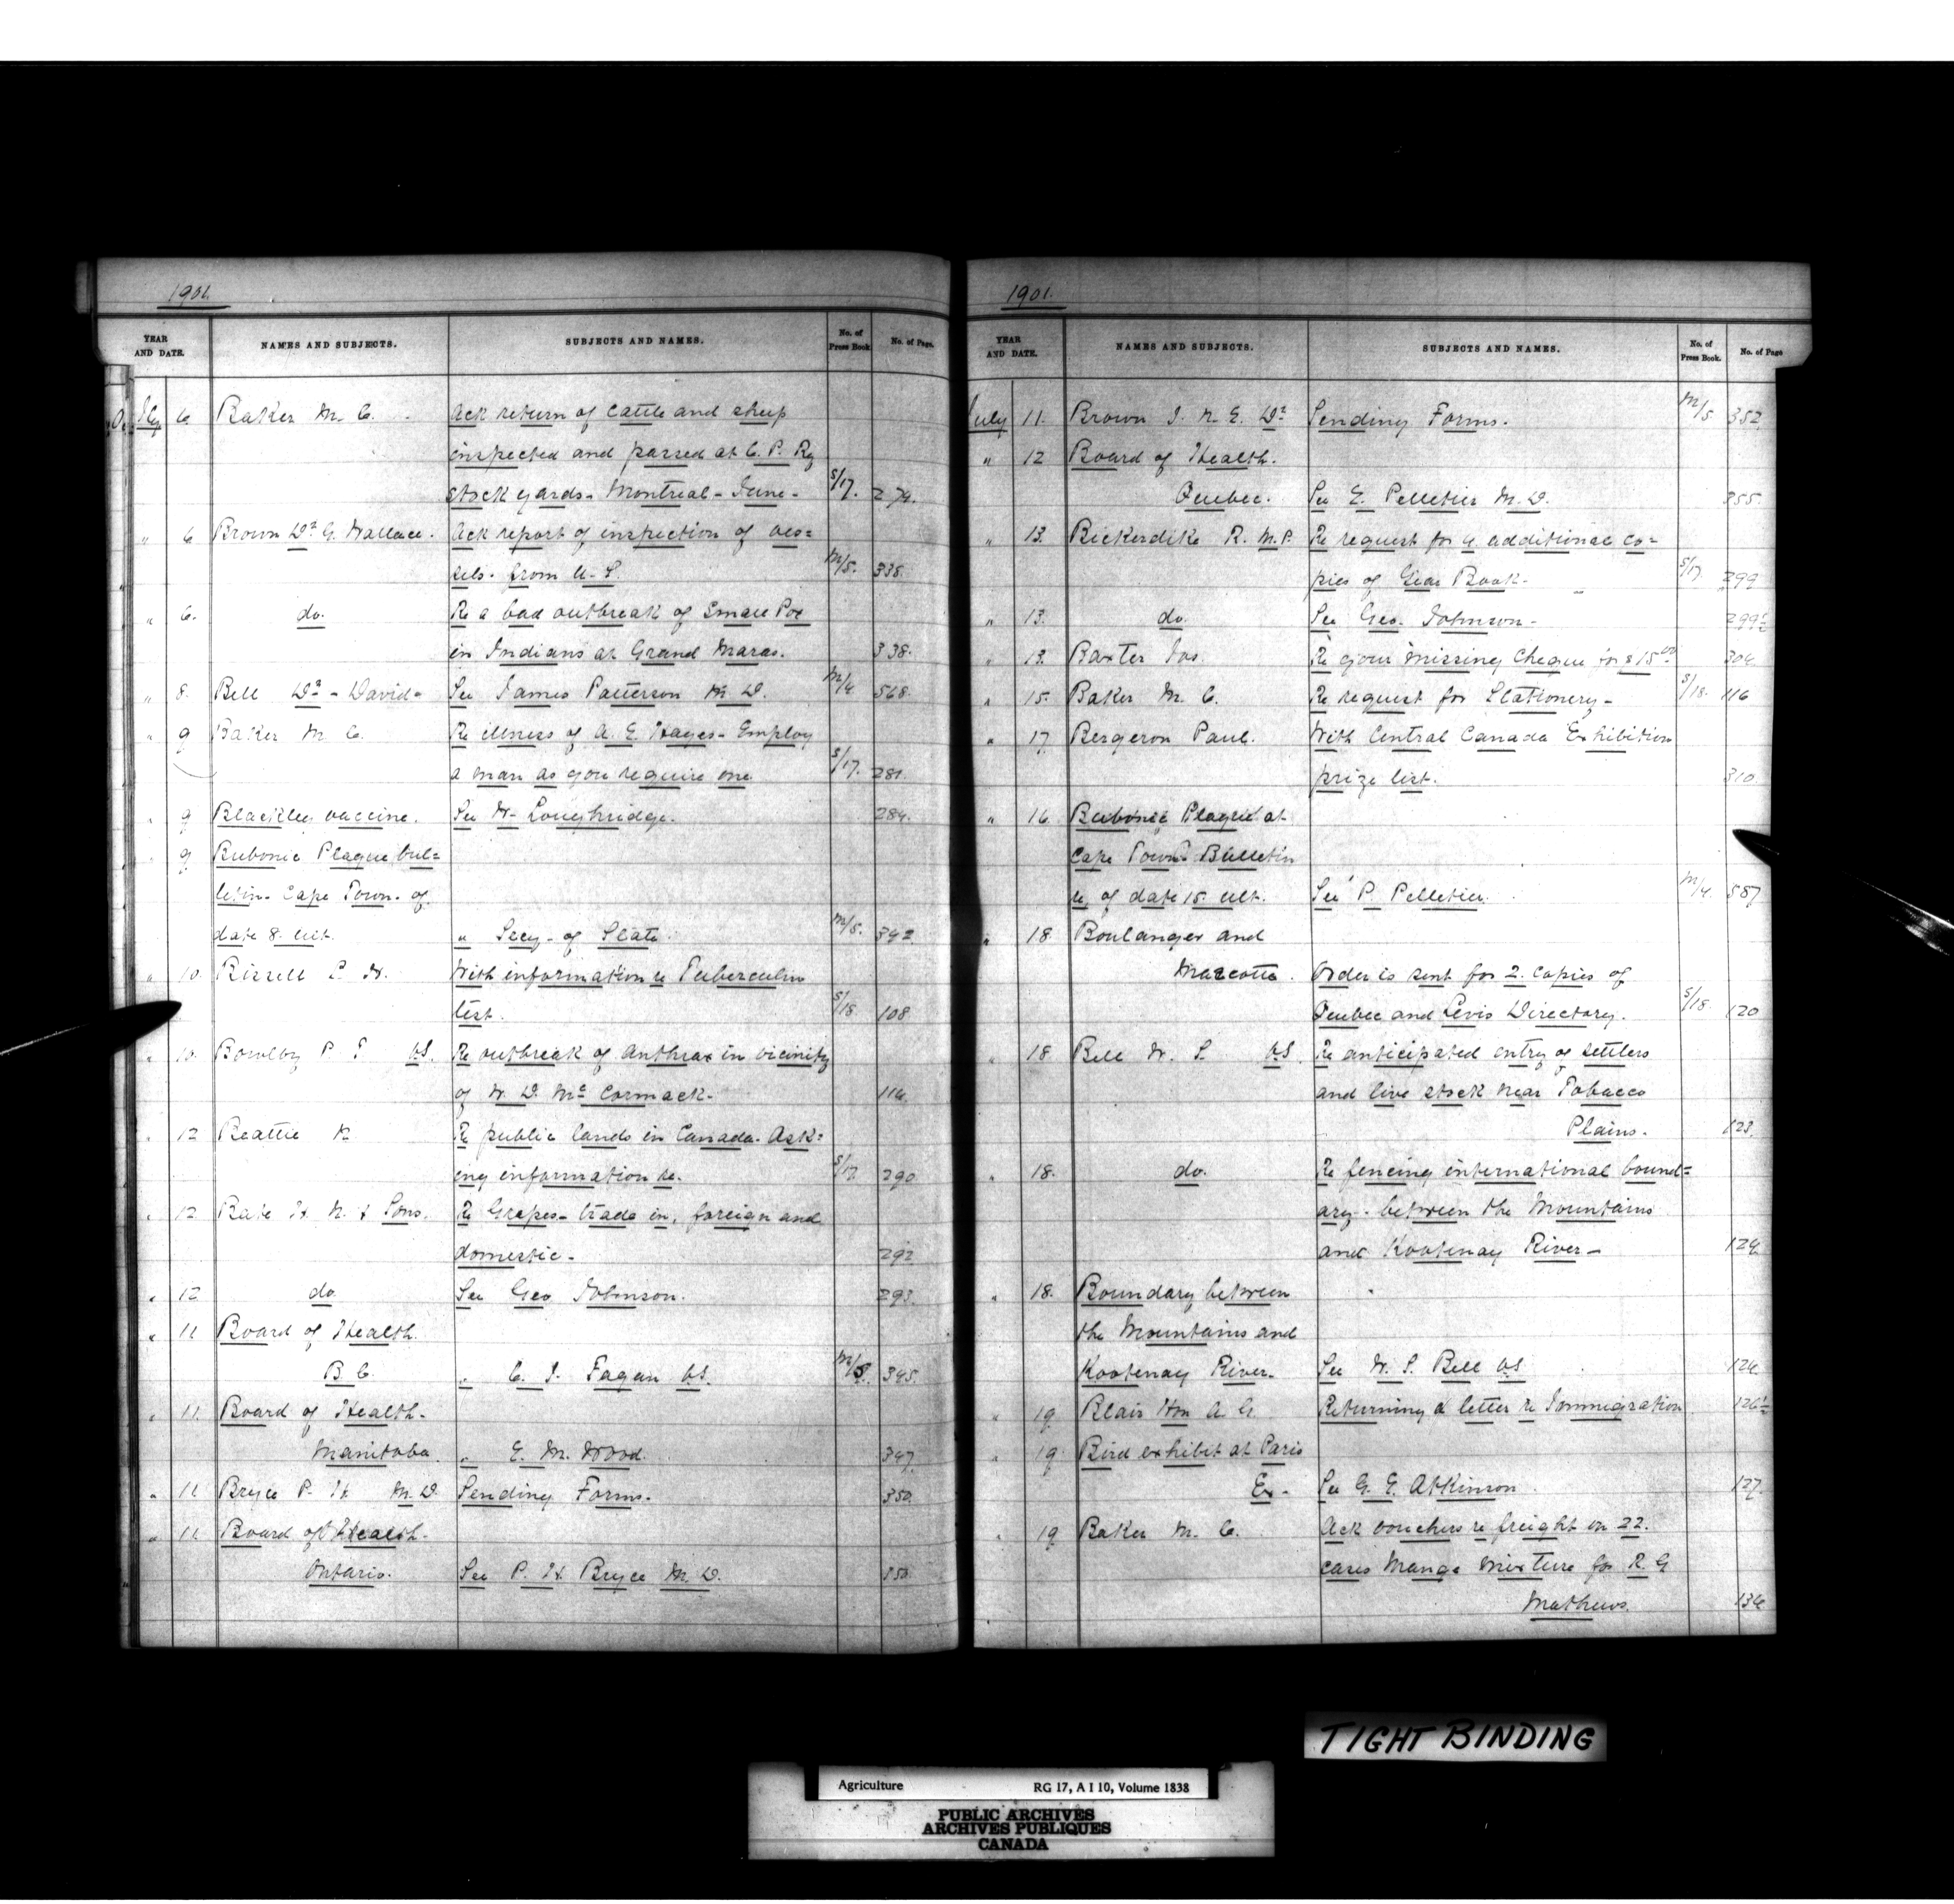 1901.
YEAR AND DATE. NAMES AND SUBJECTS. SUBJECTS AND NAMES. No. of Press Book No. of Page.
July 6. Baker M. C. Ack return of cattle and sheep
inspected and passed at C. P. Ry
stock yards - Montreal - June - S/17. 274.
" 6 Brown Dr G. Wallace. Ack report of inspection of ves=
sels. from U. S. M/5. 338.
" 6. do. Re a bad outbreak of Small Pox
in Indians at Grand Maras. 338.
" 8. Bell Dr - David - See James Patterson M. D. M/4 568.
" 9 Baker M. C. Re illness of A. E. Hayes - Employ
a man as you require one S/17. 281.
" 9 Blackleg vaccine. See W- Loughridge. 284.
" 9 Bubonic Plague bul=
letin - Cape Town - of
date 8. ult. " Secy - of State. M/5. 342
" 10. Bissell T. W. With information re Tuberculin
test. S/18 108
" 10. Bowlby P. T VS. Re outbreak of anthrax in vicinity
of W. D. Mc Cormack. 114.
" 12 Beattie K Re public lands in Canada. Ask=
ing information re. S/17 290
" 12 Bate H. N. & Sons. Re Grapes - trade in, foreign and
domestic - 292
" 12 do See Geo Johnson. 293.
" 11 Board of Health.
B C. " C. J. Fagan VS. M/5. 345.
" 11. Board of Health.
Manitoba. " E. M. Wood. 347.
" 11 Bryce P. H M. D. Sending Forms. 350.
" 11 Board of Health.
Ontario. See P. H Bryce M. D. 350.
1901.
YEAR AND DATE. NAMES AND SUBJECTS. SUBJECTS AND NAMES. No. of Press Book. No. of Page
July 11. Brown J. N. E. Dr Sending Forms. M/5 352.
" 12 Board of Health.
Quebec. See E. Pelletier M. D. 355.
" 13. Bickerdike R. M. P. Re request for 4 additional co=
pies of Year Book. S/17. 299
" 13. do. See Geo. Johnson - 299½
" 13. Baxter Jas. Re your missing cheque for $15.00 304
" 15. Baker M. C. Re request for Stationery - S/18. 116
" 17 Bergeron Paul. With Central Canada Exhibition
prize list. 310.
" 16. Bubonic Plague at
Cape Town - Bulletin
re, of date 15. ult. See P. Pelletier. M/4. 587
" 18. Boulanger and
Marcotte. Order is sent for 2. copies of
Quebec and Levis Directory. S/18. 120
" 18 Bell W. S VS. Re anticipated entry of settlers
and live stock near Tobacco
Plains. 123.
" 18. do. Re fencing international bound=
ary - between the Mountains
and Kootenay River - 124
" 18. Boundary between
the Mountains and
Kootenay River. See W. S. Bell VS 124
" 19. Blair Hon A G. Returning a letter re Immigration. 126½
" 19. Bird exhibit at Paris
Ex - See G. E. Atkinson 127.
" 19 Baker M. C. Ack vouchers re freight on 22.
cases Mange mixture for R. G
Mathews. 134
TIGHT BINDING
Agriculture RG 17, A I 10, Volume 1838
PUBLIC ARCHIVES
ARCHIVES PUBLIQUES
CANADA